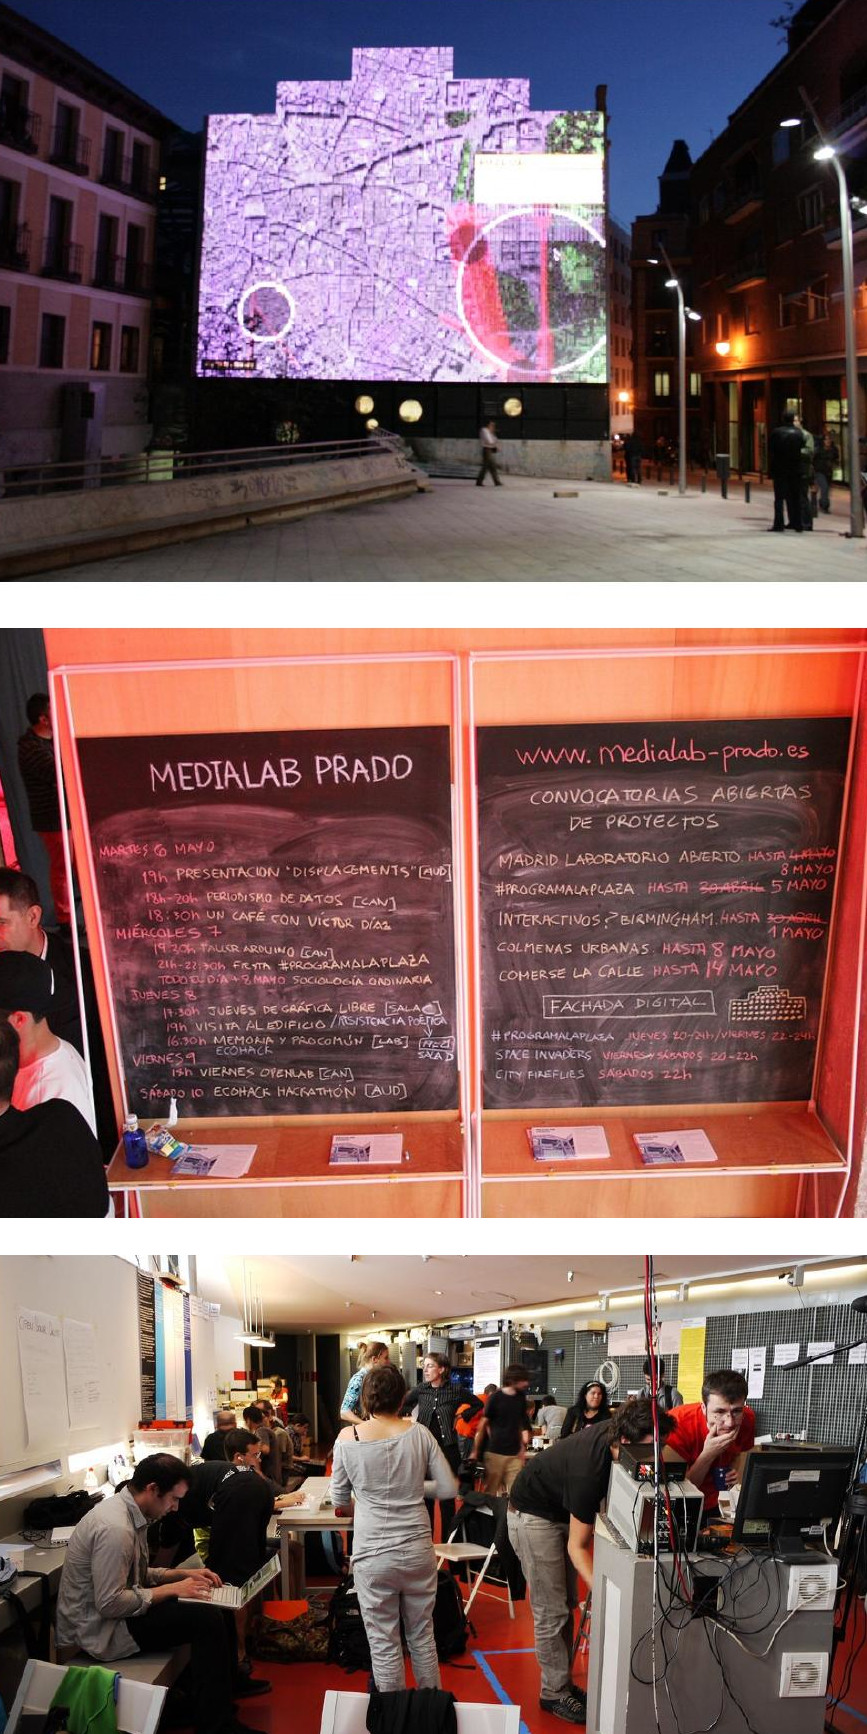 MEDIALAB PRADO
MARTES 6 MAYO
19h PRESENTACION "DISPLACEMENTS" [AUD]
18h-20h PERIODISMO DE DATOS [CAN]
18:30h UN CAFÉ CON VICTOR DÍAZ
MIÉRCOLES 7
19:20h TALLER ARDUINO [CAN]
21h-22:30h FIESTA #PROGRAMALAPLAZA
TODO EL DIA + 8 MAYO SOCIOLOGÍA ORDINARIA
JUEVES 8
17:30h JUEVES DE GRÁFICA LIBRE [SALA C]
19h VISITA AL EDIFICIO / RESISTENCIA POÉTICA
16:30h MEMORIA Y PROCOMÚN [LAB]
SALA D
ECOHACK
VIERNES 9
18h VIERNES OPENLAB [CAN]
SÁBADO 10 ECOHACK HACKATHÓN [AUD]
www.medialab-prado.es
CONVOCATORIAS ABIERTAS
DE PROYECTOS
MADRID LABORATORIO ABIERTO HASTA 4 MAYO
8 MAYO
#PROGRAMALAPLAZA HASTA 30 ABRIL 5 MAYO
INTERACTIVOS? BIRMINGHAM. HASTA 30 ABRIL
1 MAYO
COLMENAS URBANAS HASTA 8 MAYO
COMERSE LA CALLE HASTA 14 MAYO
FACHADA DIGITAL
#PROGRAMALAPLAZA JUEVES 20-24h/VIERNES 22-24h
SPACE INVADERS VIERNES Y SÁBADOS 20-22h
CITY FIREFLIES SÁBADOS 22h